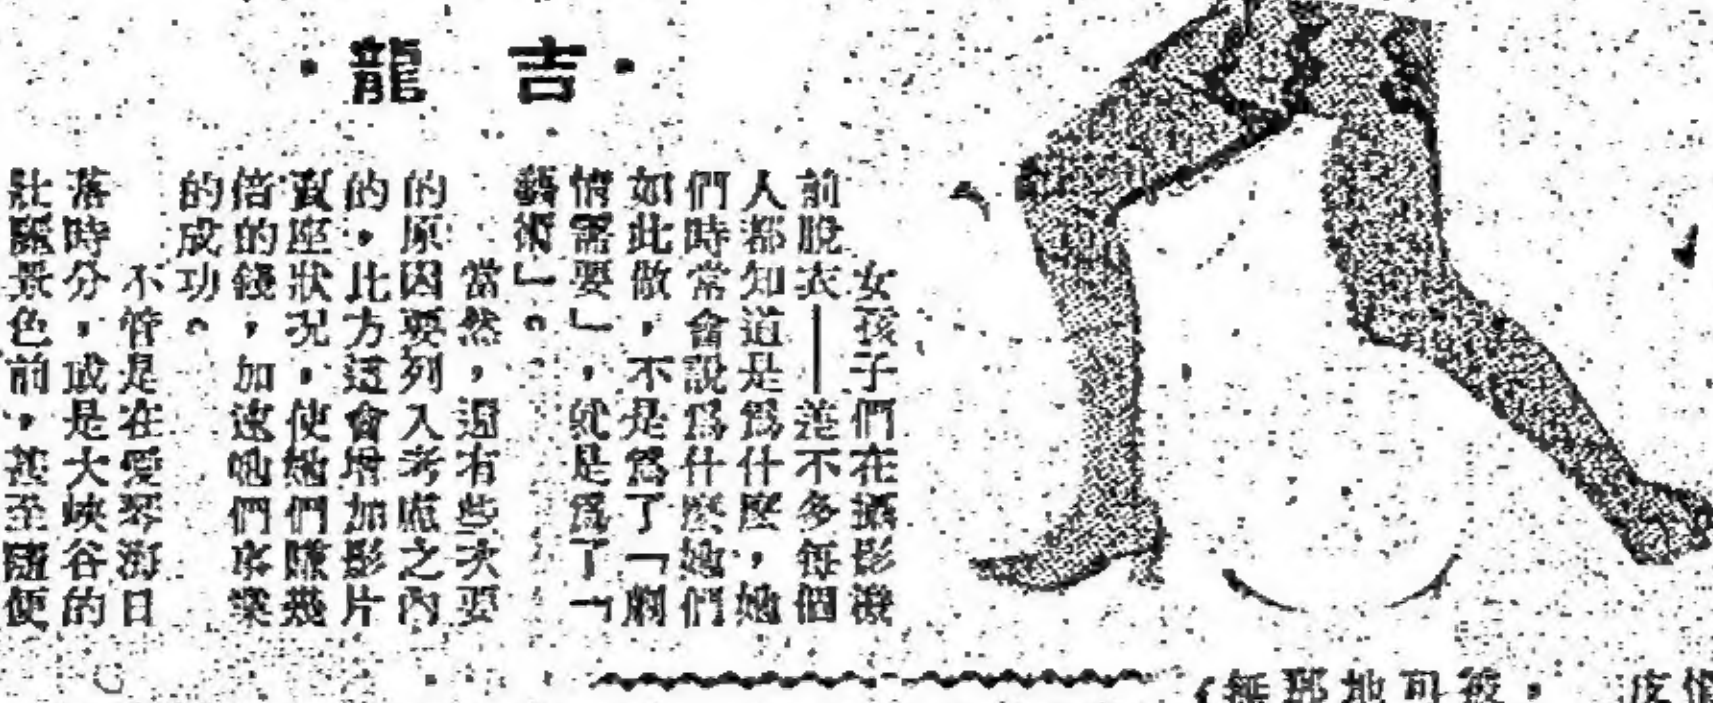 ·吉龍·
女孩子們在攝影機
前脫衣——差不多每個
人都知道是爲什麼，她
們時常會說爲什麼她們
如此做，不是爲了「劇
情需要」，就是爲了「
藝術」。
當然，還有些次要
的原因要列入考慮之內
的，比方這會增加影片
賣座狀況，使她們賺幾
倍的錢，加速她們享樂
的成功。
不管是在愛琴海日
落時分，或是大峽谷的
壯麗景色前，甚至隨便